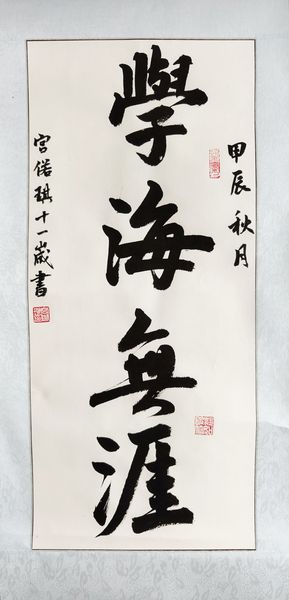 甲辰秋月
學海無涯
宮偌琪十一歲書